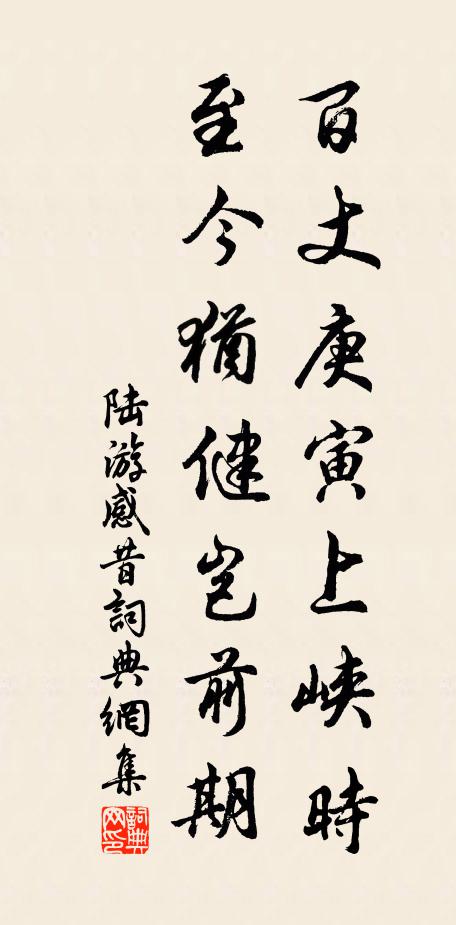 百丈庚寅上峡時
至今猶健豈前期
陆游感昔詞典網集
詞典网印